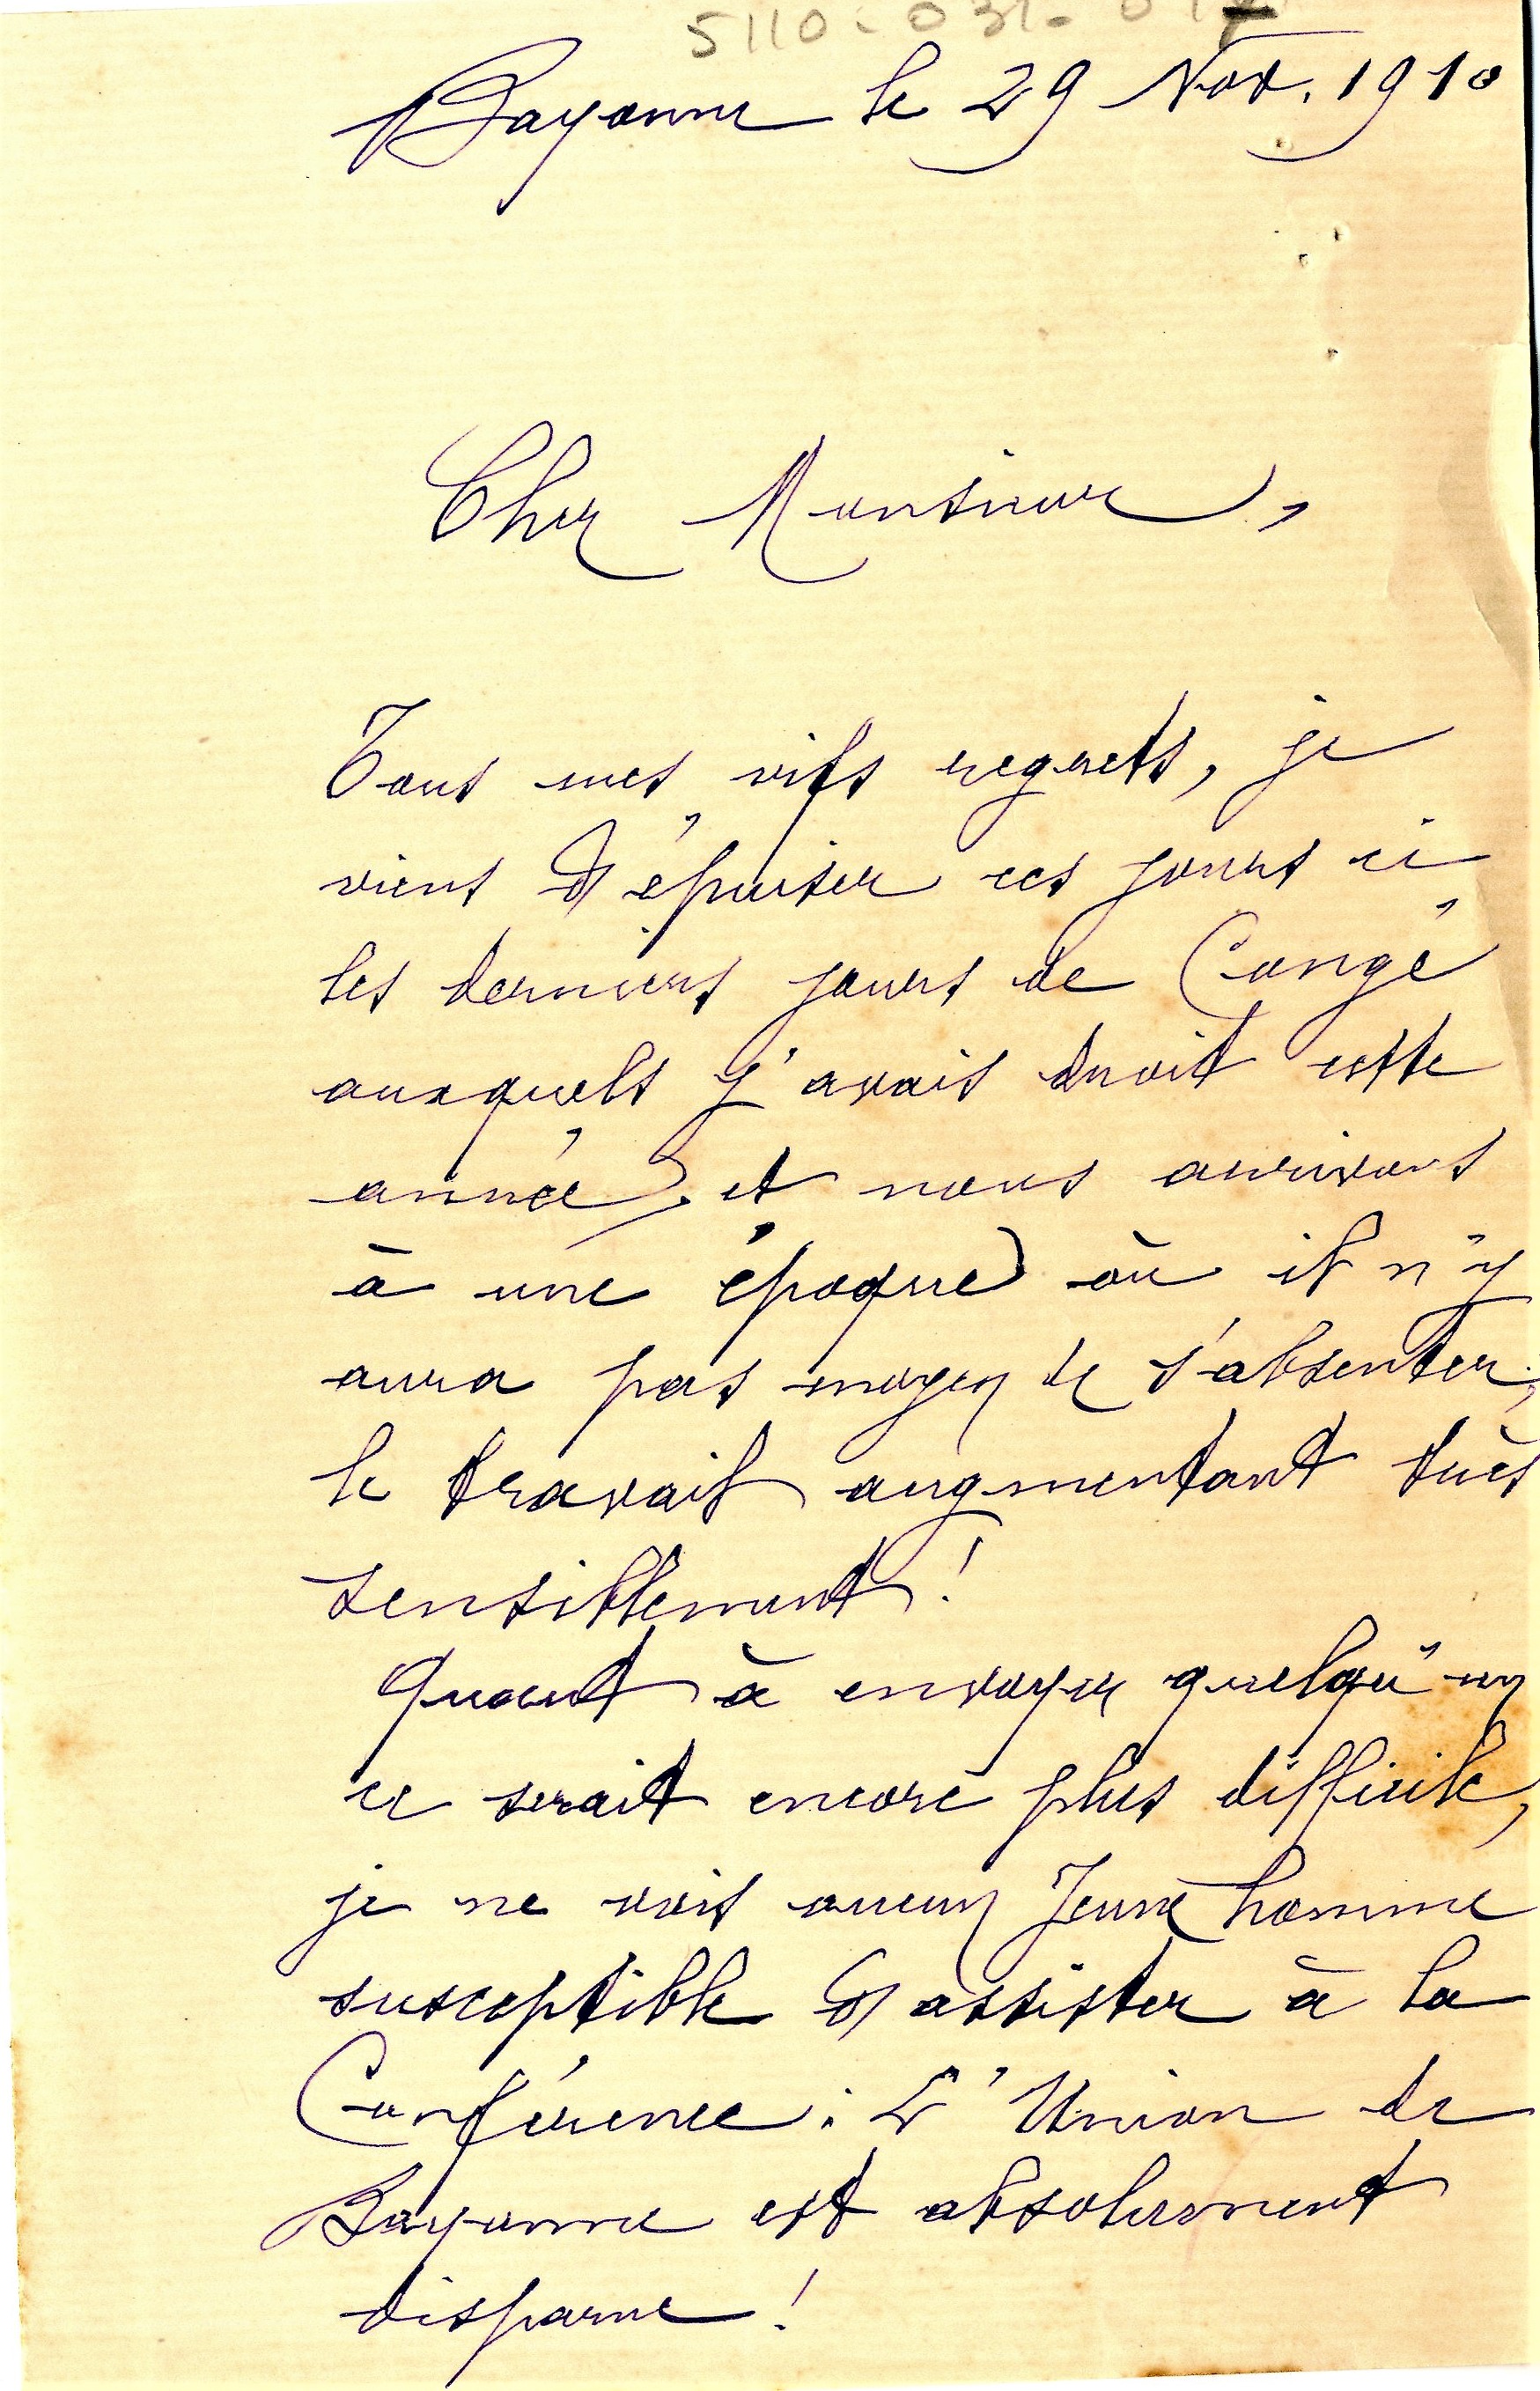 5110-031-01
Bayonne le 29 Nov. 1910
Cher Monsieur,
Tous mes vifs regrets, je
viens d'épuiser ces jours ci
les derniers jours de Congé
auxquels j'avais droit cette
année, et nous arrivons
à une époque où il n'y
aura pas moyen de s'absenter,
le travail augmentant très
sensiblement !
Quant à envoyer quelqu'un
ce serait encore plus difficile,
je ne vois aucun Jeune homme
susceptible d'assister à la
Conférence : L'Union de
Bayonne est absolument
disparue !